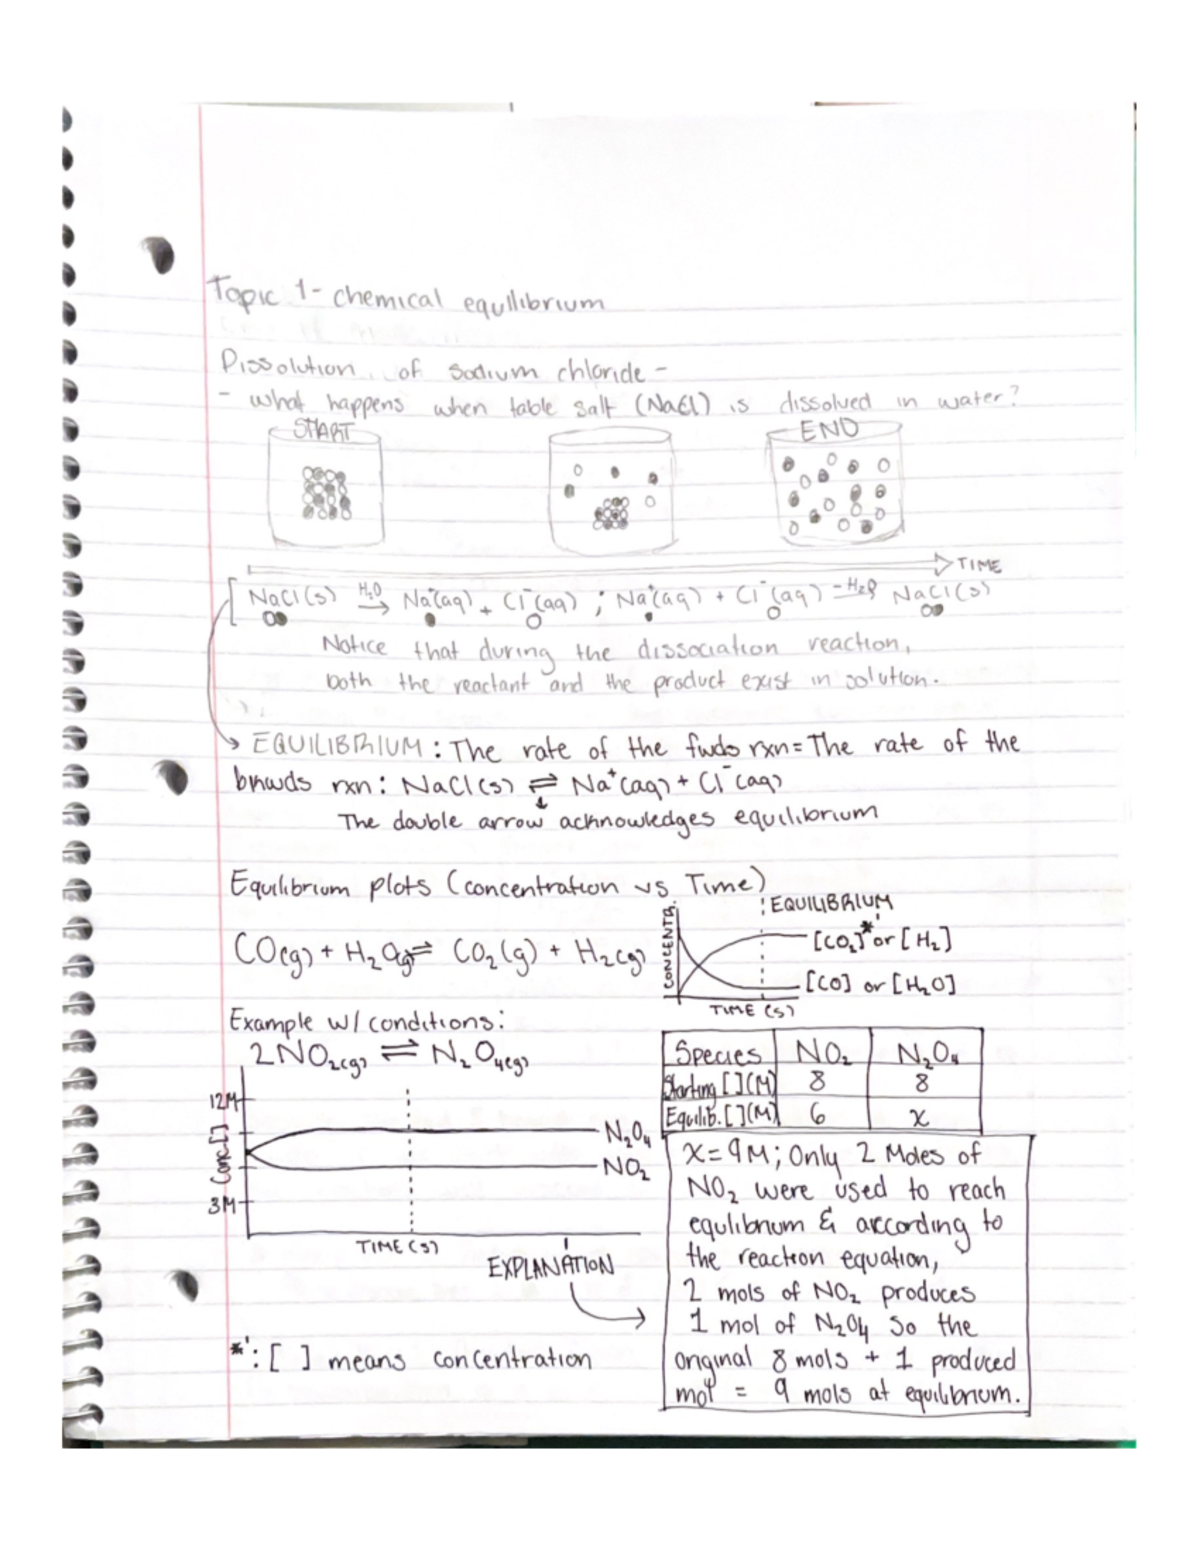 Topic 1- chemical equilibrium
Dissolution of sodium chloride -
- what happens when table salt (NaCl) is dissolved in water?
START
END
TIME
NaCl(s) H₂O → Na⁺(aq) + Cl⁻(aq) ; Na⁺(aq) + Cl⁻(aq) -H₂O → NaCl(s)
Notice that during the dissociation reaction,
both the reactant and the product exist in solution.
EQUILIBRIUM : The rate of the fwds rxn = The rate of the
bkwds rxn : NaCl(s) ⇌ Na⁺(aq) + Cl⁻(aq)
The double arrow acknowledges equilibrium
Equilibrium plots (concentration vs Time)
CO(g) + H₂O(g) ⇌ CO₂(g) + H₂(g)
CONCENTR.
EQUILIBRIUM
[CO₂]* or [H₂]
[CO] or [H₂O]
TIME (s)
Example w/ conditions:
2NO₂(g) ⇌ N₂O₄(g)
12M
Conc[]
3M
N₂O₄
NO₂
TIME (s)
EXPLANATION
Species NO₂ N₂O₄
Starting [](M) 8 8
Equilib.[](M) 6 x
x = 9M; Only 2 Moles of
NO₂ were used to reach
equilibrium & according to
the reaction equation,
2 mols of NO₂ produces
1 mol of N₂O₄ so the
original 8 mols + 1 produced
mol = 9 mols at equilibrium.
*: [ ] means concentration